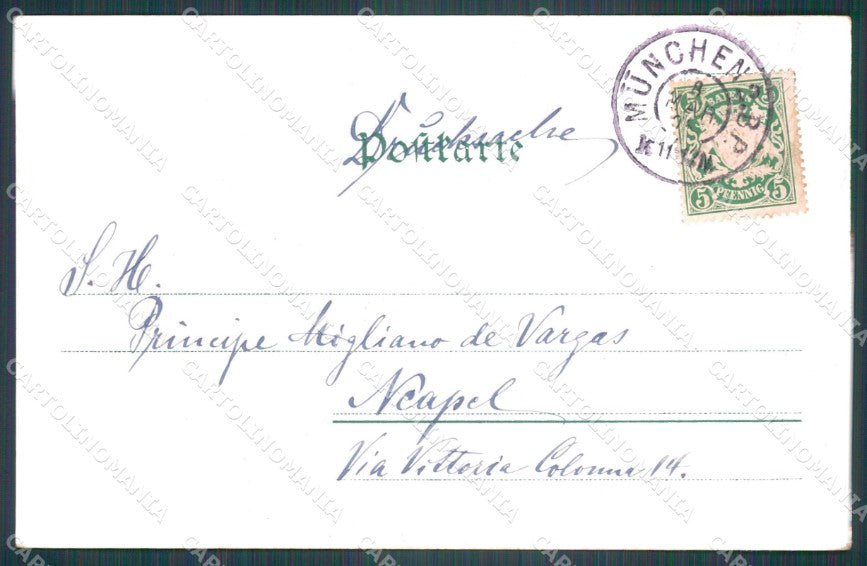 MÜNCHEN
BAYERN
5 PFENNIG 5
Drucksache
Postkarte
S. H.
Principe Migliano de Vargas
Neapel
Via Vittoria Colonna 14.
CARTOLINOMANIA